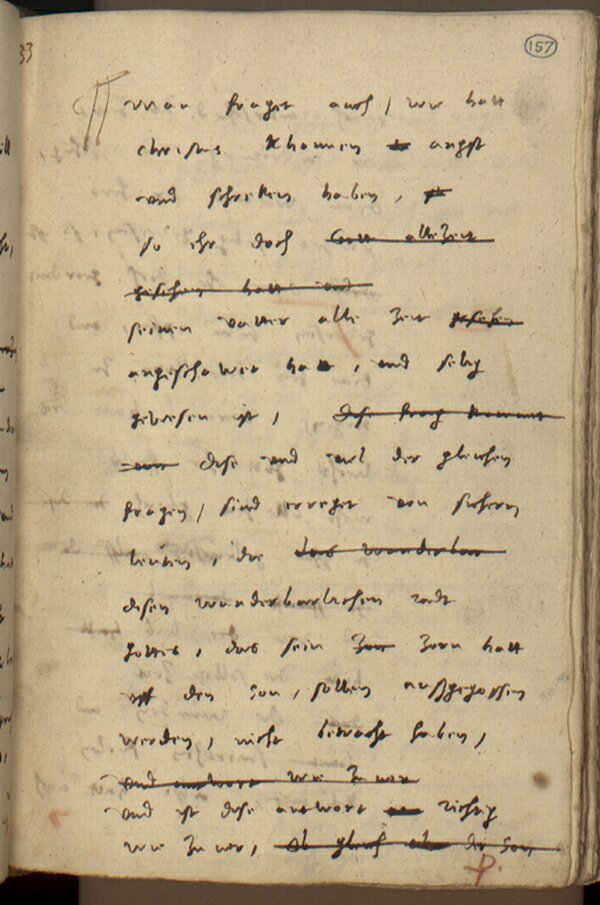 33
157
man fraget auch / wie hatt
christus khonnen angst
und schreken haben,
so ehr doch Gott alle Zeit
gesehen hatt und
seinen vatter alle Zeit gesehen
angeschawet hatt, und selig
gewesen ist, dise frag kommt
von dise und viel der gleichen
fragen / sind erreget von sichern
leuten, die das wunderbar
disen wunderbarlichen radt
gottes, das sein Zorn hatt
uff den Son, sollen außgegossen
werden, nicht betracht haben,
und antwort wie Zuvor
und ist dise antwort richtig
wie Zuvor, Ob gleich der Son